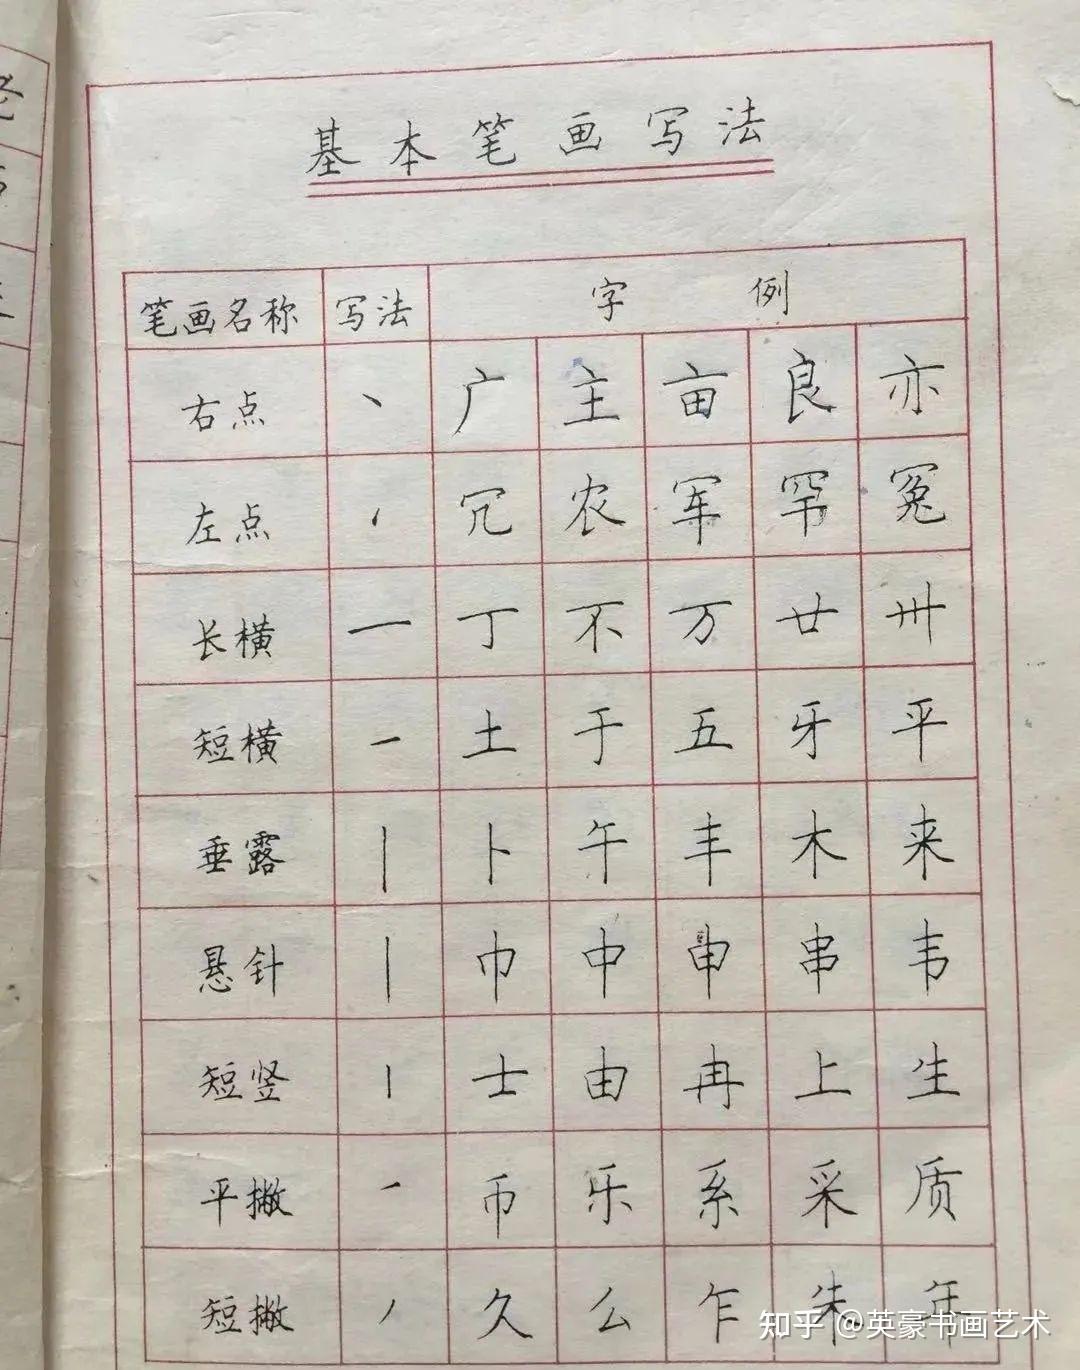 基本笔画写法
笔画名称 写法 字例
右点 丶 广 主 亩 良 亦
左点 冗 农 军 罕 冤
长横 一 丁 不 万 廿 卅
短横 一 土 于 五 牙 平
垂露 丨 卜 午 丰 木 来
悬针 丨 巾 中 申 串 韦
短竖 丨 士 由 冉 上 生
平撇 ㇀ 币 乐 系 采 质
短撇 丿 久 么 乍 朱 年
知乎 @英豪书画艺术